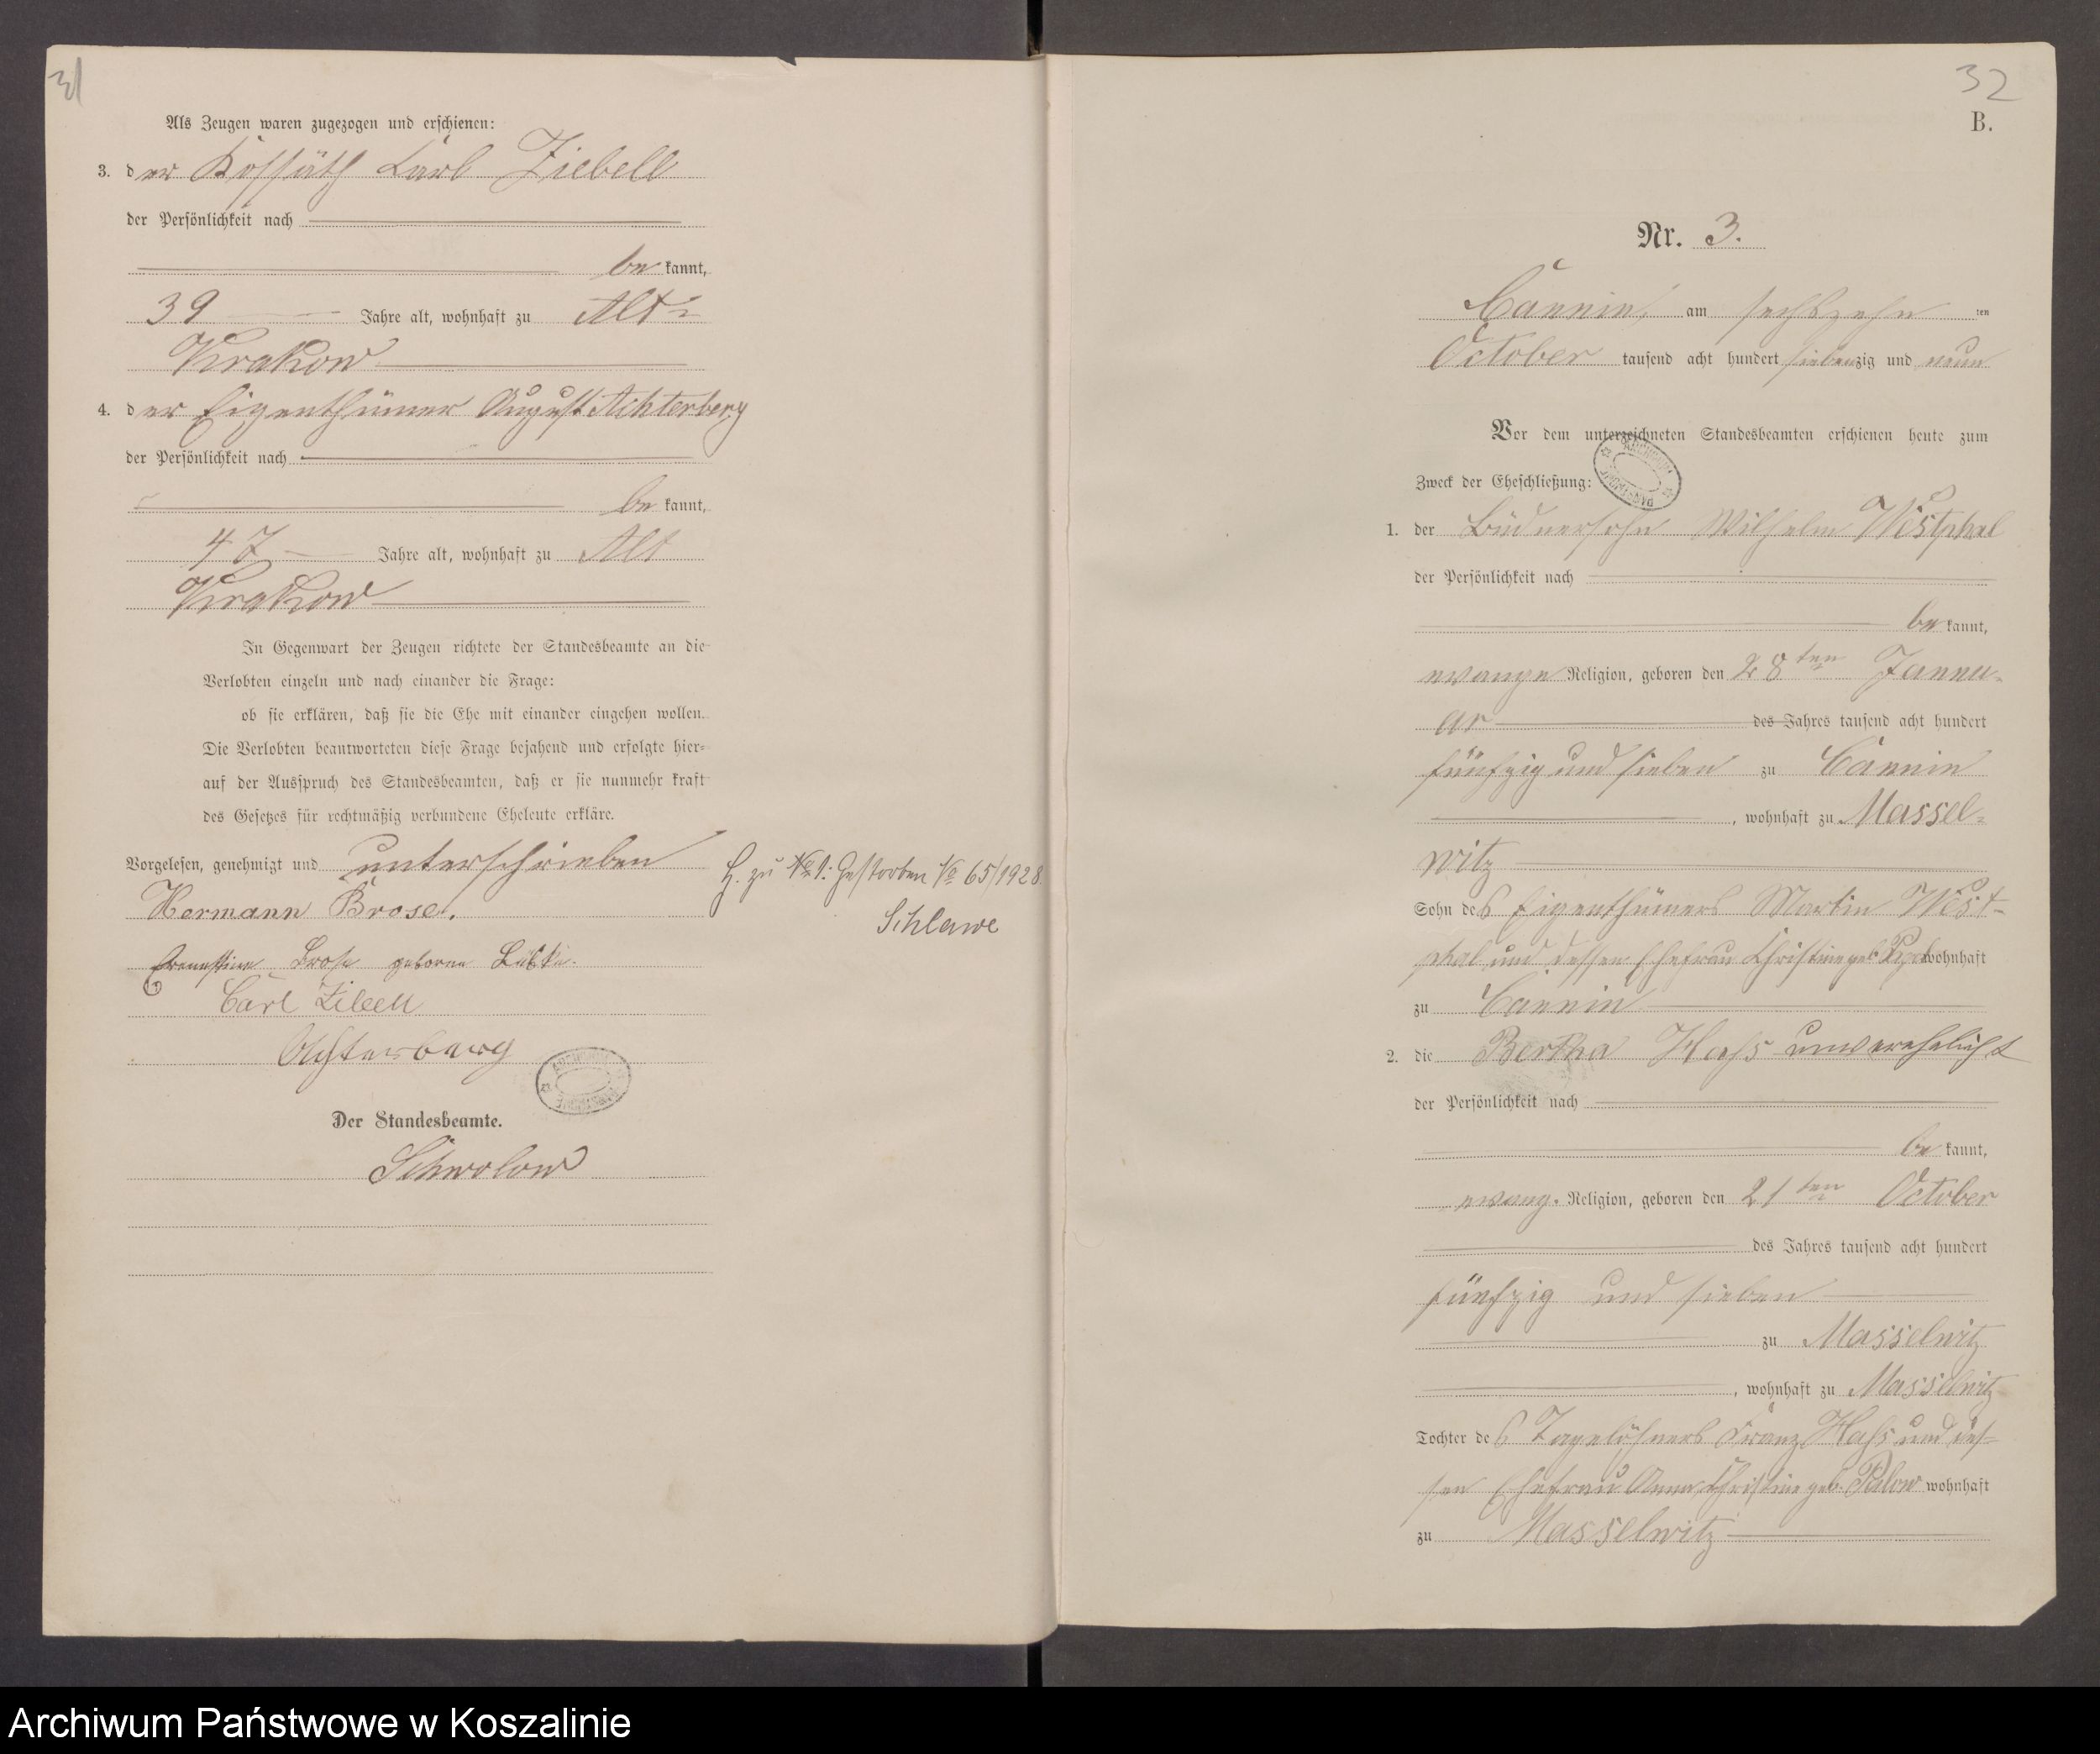 31
Als Zeugen waren zugezogen und erschienen:
3. der Kossäth Carl Ziebell
der Persönlichkeit nach
bekannt,
39 Jahre alt, wohnhaft zu Alt-
Krakow
4. der Eigenthümer August Achterberg
der Persönlichkeit nach
bekannt,
47 Jahre alt, wohnhaft zu Alt
Krakow
In Gegenwart der Zeugen richtete der Standesbeamte an die
Verlobten einzeln und nach einander die Frage:
ob sie erklären, daß sie die Ehe mit einander eingehen wollen.
Die Verlobten beantworteten diese Frage bejahend und erfolgte hier-
auf der Ausspruch des Standesbeamten, daß er sie nunmehr kraft
des Gesetzes für rechtmäßig verbundene Eheleute erkläre.
Vorgelesen, genehmigt und unterschrieben
Hermann Brose.
Ernestine Brose geborne
Carl Zibell
Achterberg
Der Standesbeamte.
Schwolow
H. zu No 1. Gestorben No 65/1928
Schlawe
32
B.
Nr. 3.
Cannin, am sechszehnten
October tausend acht hundert siebenzig und neun
Vor dem unterzeichneten Standesbeamten erschienen heute zum
Zweck der Eheschließung:
1. der Büdnersohn Wilhelm Westphal
der Persönlichkeit nach
bekannt,
evange Religion, geboren den 28ten Janu-
ar des Jahres tausend acht hundert
fünfzig und sieben zu Cannin
, wohnhaft zu Massel-
witz
Sohn des Eigenthümers Martin West-
phal und dessen Ehefrau Christine geb. wohnhaft
zu Cannin
2. die Bertha Hass unverehelicht
der Persönlichkeit nach
bekannt,
evang. Religion, geboren den 21ten October
des Jahres tausend acht hundert
fünfzig und sieben
zu Masselwitz
, wohnhaft zu Masselwitz
Tochter des Tagelöhners Franz Hass und des-
sen Ehefrau Anna Christine geb. Palow wohnhaft
zu Masselwitz
Archiwum Państwowe w Koszalinie